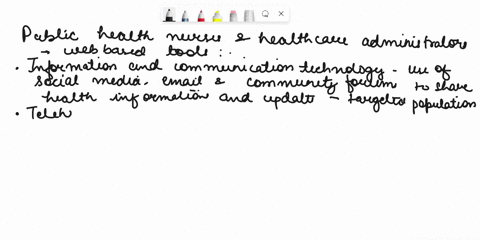 Public health nurse & healthcare administrators
→ web based tools :.
• Information and communication technology - use of
social media. email & community forum to share
health information and update - targeted population
• Teleh